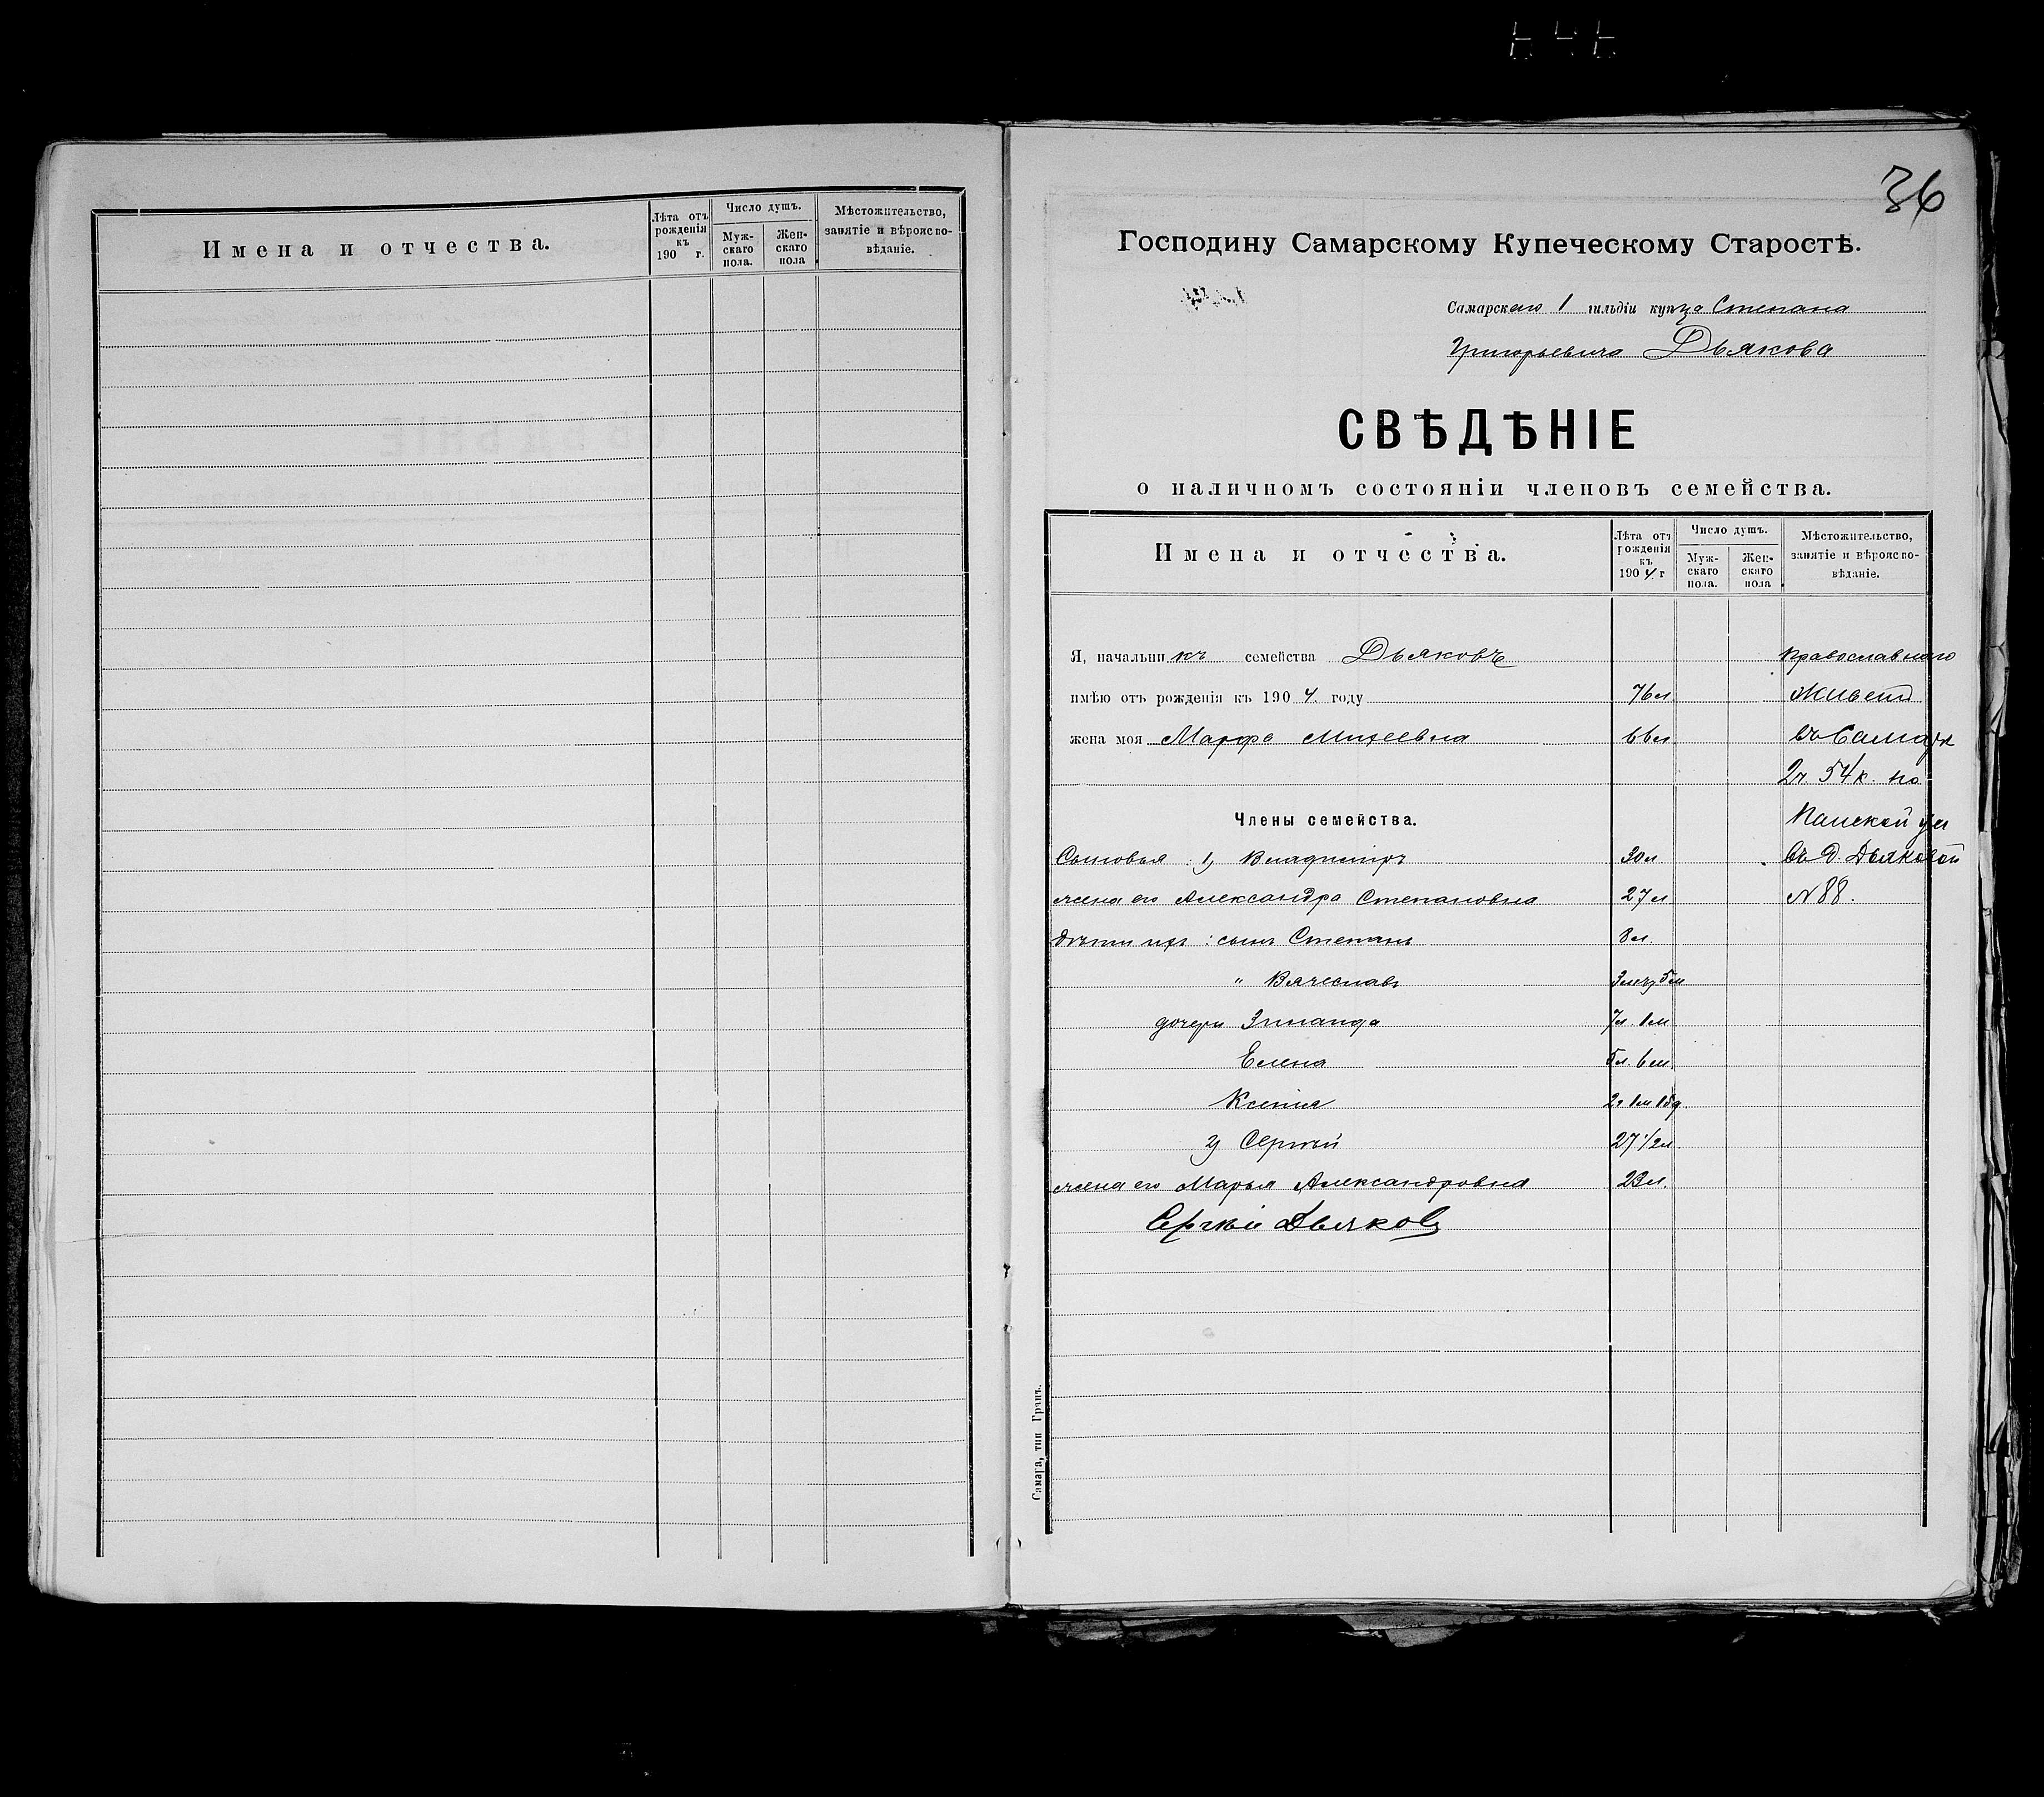 Имена и отчества.
Лѣта отъ рожденія къ 190 г.
Число душъ.
Мужскаго пола.
Женскаго пола
Мѣстожительство, занятіе и вѣроисповѣданіе.
36
Господину Самарскому Купеческому Старостѣ.
Самарскаго 1 гильдіи купца Степана
Григорьевича Дьякова
СВѢДѢНІЕ
о наличномъ состояніи членовъ семейства.
Имена и отчества.
Лѣта отъ рожденія къ 1904 г
Число душъ.
Мужскаго пола.
Женскаго пола
Мѣстожительство, занятіе и вѣроисповѣданіе.
Я, начальникъ семейства Дьяковъ Православнаго
имѣю отъ рожденія къ 1904. году 76 л. Живетъ
жена моя Марфа Михеевна 66 л. въ Самарѣ
2 ч. 54 к. по
Члены семейства. Панской ул
Сыновья: 1) Владиміръ 30 л въ д. Дьяковой
жена его Александра Степановна 27 л № 88.
дѣти ихъ: сынъ Степанъ 8 л.
" Вячеславъ 5 м
дочери Зинаида 7 л. 1 м
Елена 5 л. 6 м.
Ксенія 2 г 1 м 15 д
2) Сергѣй 27 1/2 л
жена его Марья Александровна 23 л.
Сергѣй Дьяковъ
Самара, тип Гранъ.